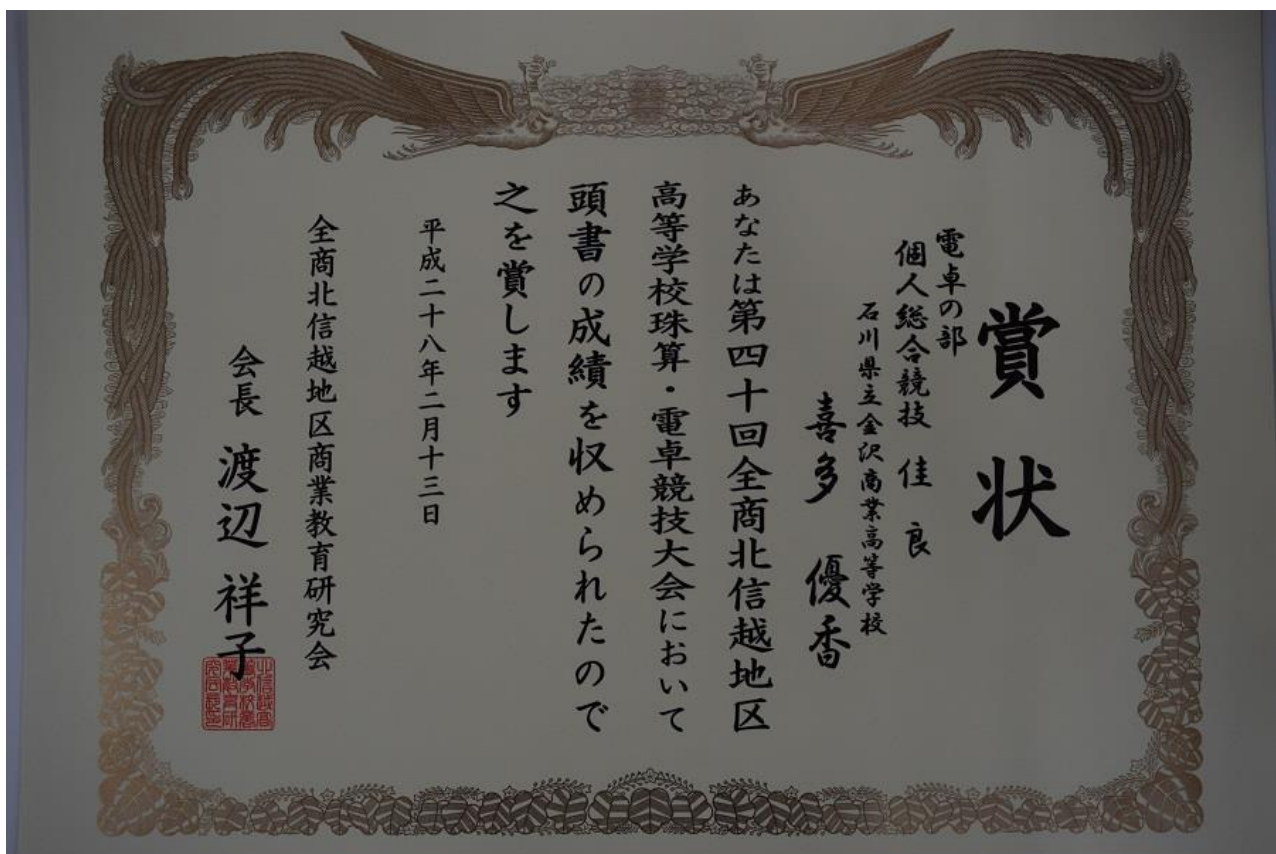 賞状
電卓の部
個人総合競技 佳良
石川県立金沢商業高等学校
喜多 優香
あなたは第四十回全商北信越地区
高等学校珠算・電卓競技大会において
頭書の成績を収められたので
之を賞します
平成二十八年二月十三日
全商北信越地区商業教育研究会
会長 渡辺 祥子